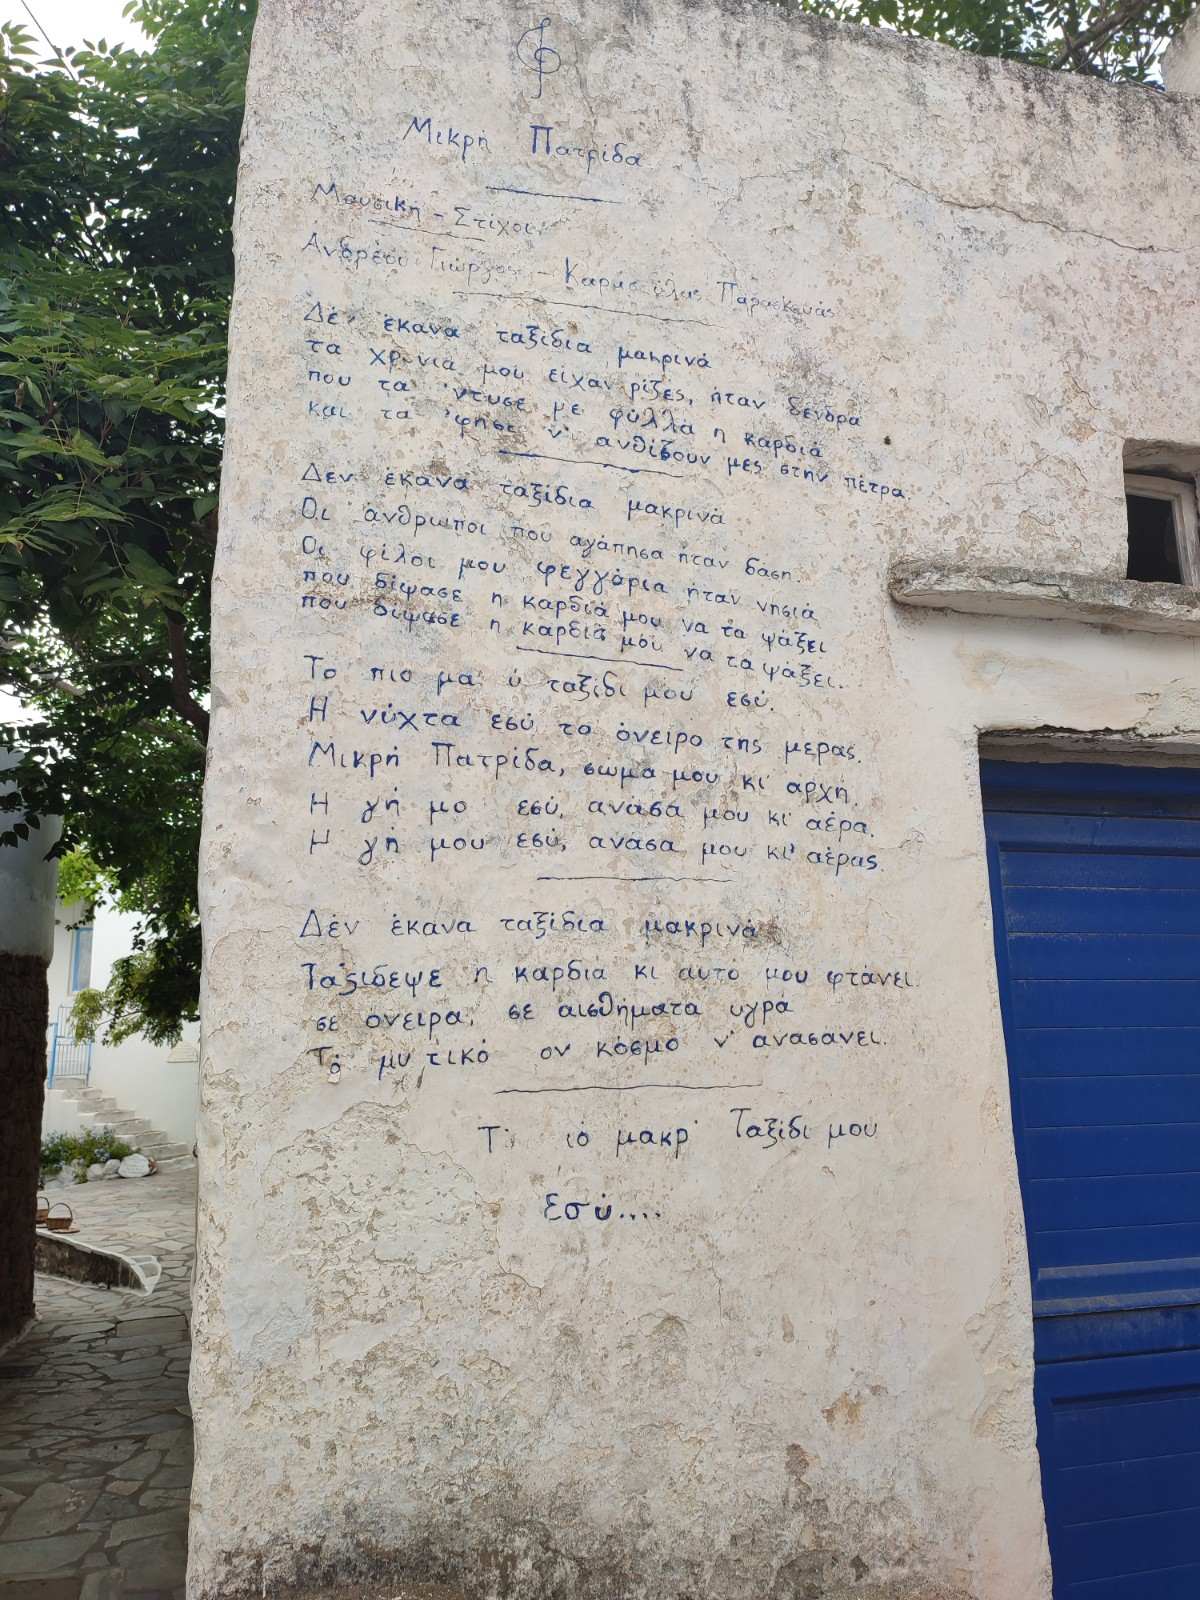 Μικρή Πατρίδα
Μουσική - Στίχοι
Ανδρέου Γιώργος - Παρασκευάς
Δέν έκανα ταξίδια μακρινά
τα χρόνια μου είχαν ρίζες, ήταν δένδρα
που τα 'ντυσε με φύλλα η καρδιά
και τα 'φησε ν' ανθίζουν μες στην πέτρα.
Δεν έκανα ταξίδια μακρινά
Οι άνθρωποι που αγάπησα ήταν δάση.
Οι φίλοι μου φεγγάρια ήταν νησιά
που δίψασε η καρδιά μου να τα ψάξει
που δίψασε η καρδιά μου να τα ψάξει.
Το πιο μα ύ ταξίδι μου εσύ.
Η νύχτα εσύ, το όνειρο της μερας.
Μικρή Πατρίδα, σώμα μου κι αρχή.
Η γή μο εσύ, ανάσα μου κι αέρα.
Η γή μου εσύ, ανάσα μου κι' αέρας.
Δέν έκανα ταξίδια μακρινά
Ταξίδεψε η καρδιά κι αυτό μου φτάνει
σε όνειρα, σε αισθήματα υγρά
Τό μυ τικό ον κόσμο ν' ανασάνει.
Τ ιό μακρ Ταξίδι μου
Εσύ....